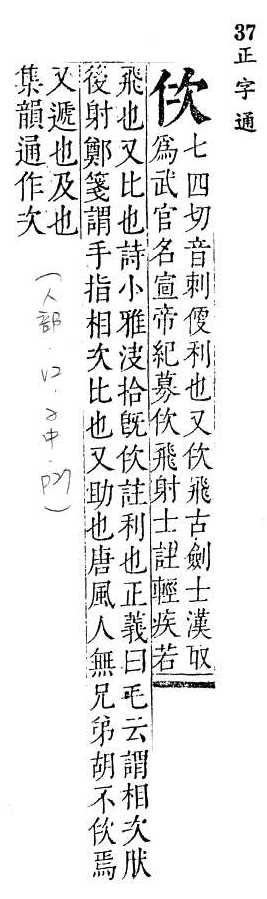 37正字通
佽
七四切音刺便利也又佽飛古劍士漢取
爲武官名宣帝紀募佽飛射士註輕疾若
飛也又比也詩小雅决拾旣佽註利也正義曰毛云謂相次肰
後射鄭箋謂手指相次比也又助也唐風人無兄弟胡不佽焉
又遞也及也
集韻通作次
(人部.12.子中.P27)